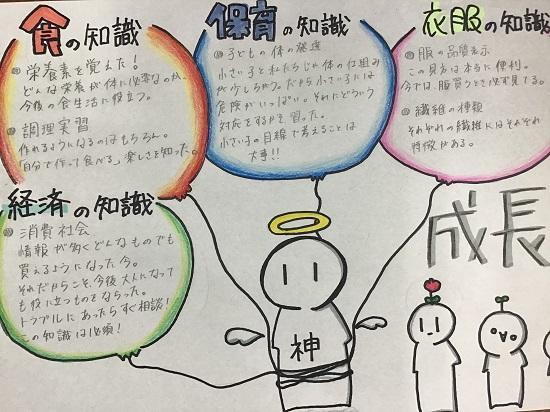 食の知識
栄養素を覚えた！
どんな栄養が体に必要なのか、
今後の食生活に役立つ。
調理実習
作れるようになるのはもちろん。
「自分で作って食べる」楽しさを知った。
保育の知識
子どもの体の発達
小さい子と私たちじゃ体の仕組み
が少しちがう。だから小さい子には
危険がいっぱい。それにどういう
対応をするかを習った。
小さい子の目線で考えることは
大事!!
衣服の知識
服の品質表示
この見方は本当に便利。
今では、服買うとき必ず見てる。
繊維の種類
それぞれの繊維にはそれぞれ
特徴がある。
経済の知識
消費社会
情報が多くどんなものでも
買えるようになった今。
それだからこそ、今後大人になって
も役に立つものをならった。
トラブルにあったらすぐ相談！
この知識は必須！
成長
神